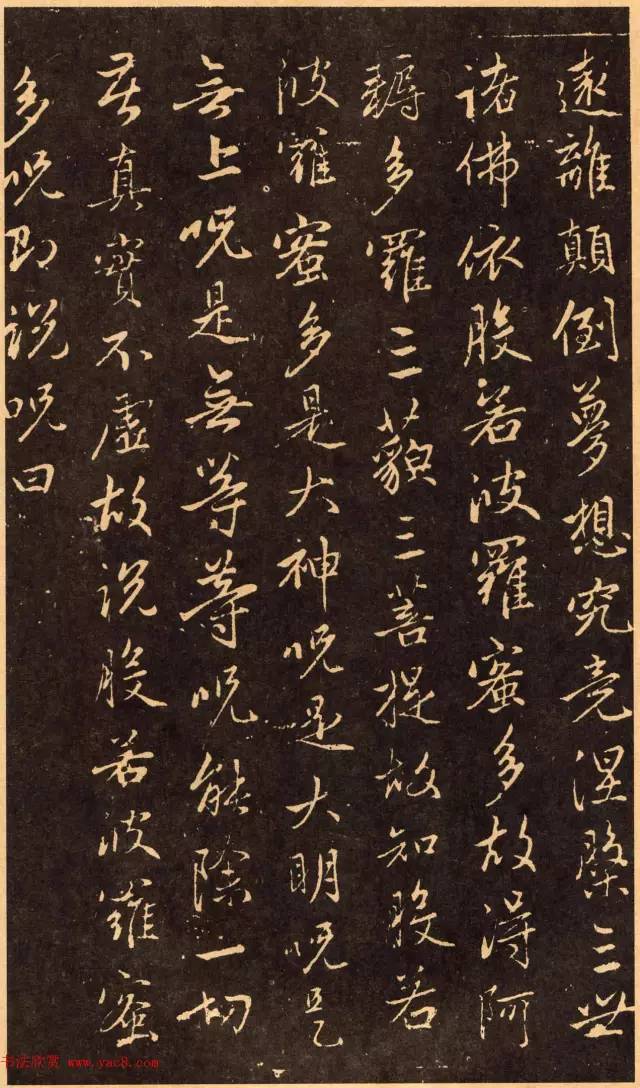 遠離顛倒夢想究竟涅槃三世
諸佛依般若波羅蜜多故得阿
耨多羅三藐三菩提故知般若
波羅蜜多是大神呪是大明呪是
無上呪是無等等呪能除一切
苦真實不虛故說般若波羅蜜
多呪即說呪曰
书法欣赏 www.yac8.com